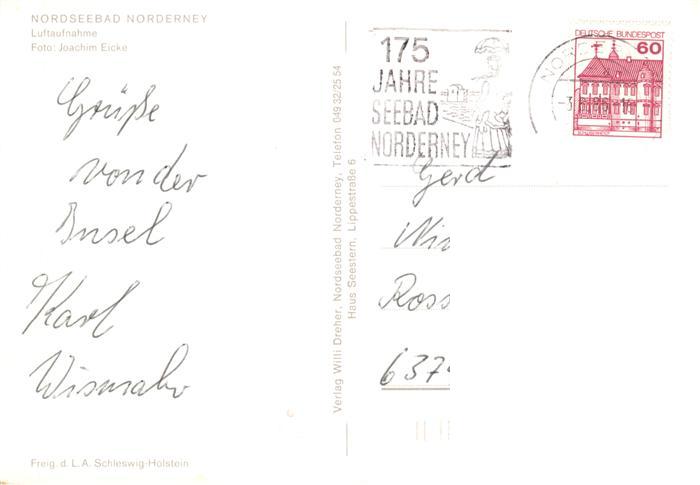 NORDSEEBAD NORDERNEY
Luftaufnahme
Foto: Joachim Eicke
Grüße
von der
Insel
Karl
Freig. d. L.A. Schleswig-Holstein
Verlag Willi Dreher, Nordseebad Norderney, Telefon 04932/2554
Haus Seestern, Lippestraße 6
175
JAHRE
SEEBAD
NORDERNEY
DEUTSCHE BUNDESPOST
60
Gerd
Ross
637